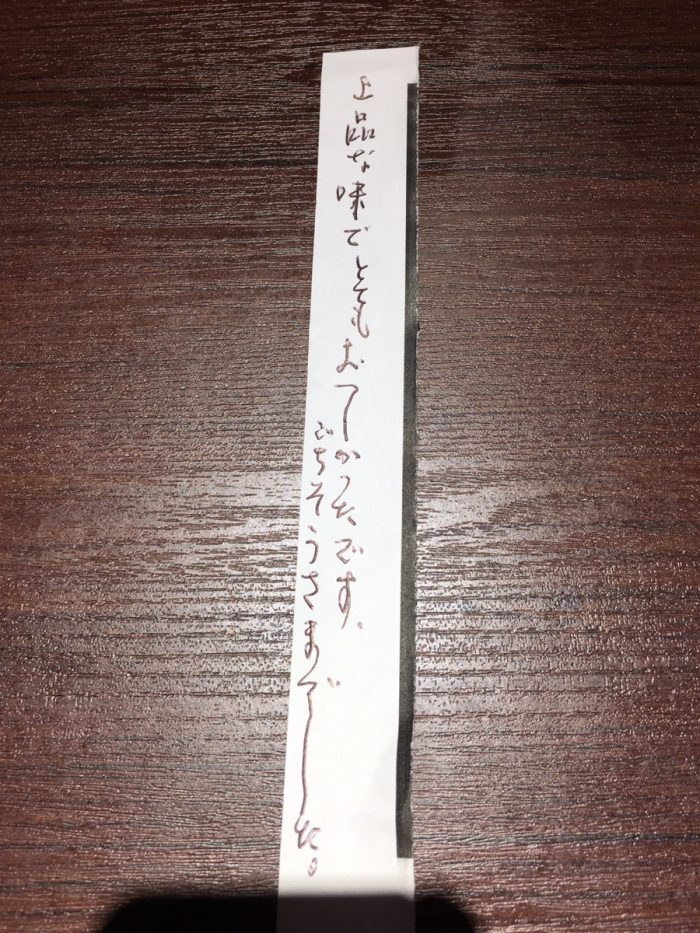 上品な味でとてもおいしかったです、
ごちそうさまでした。